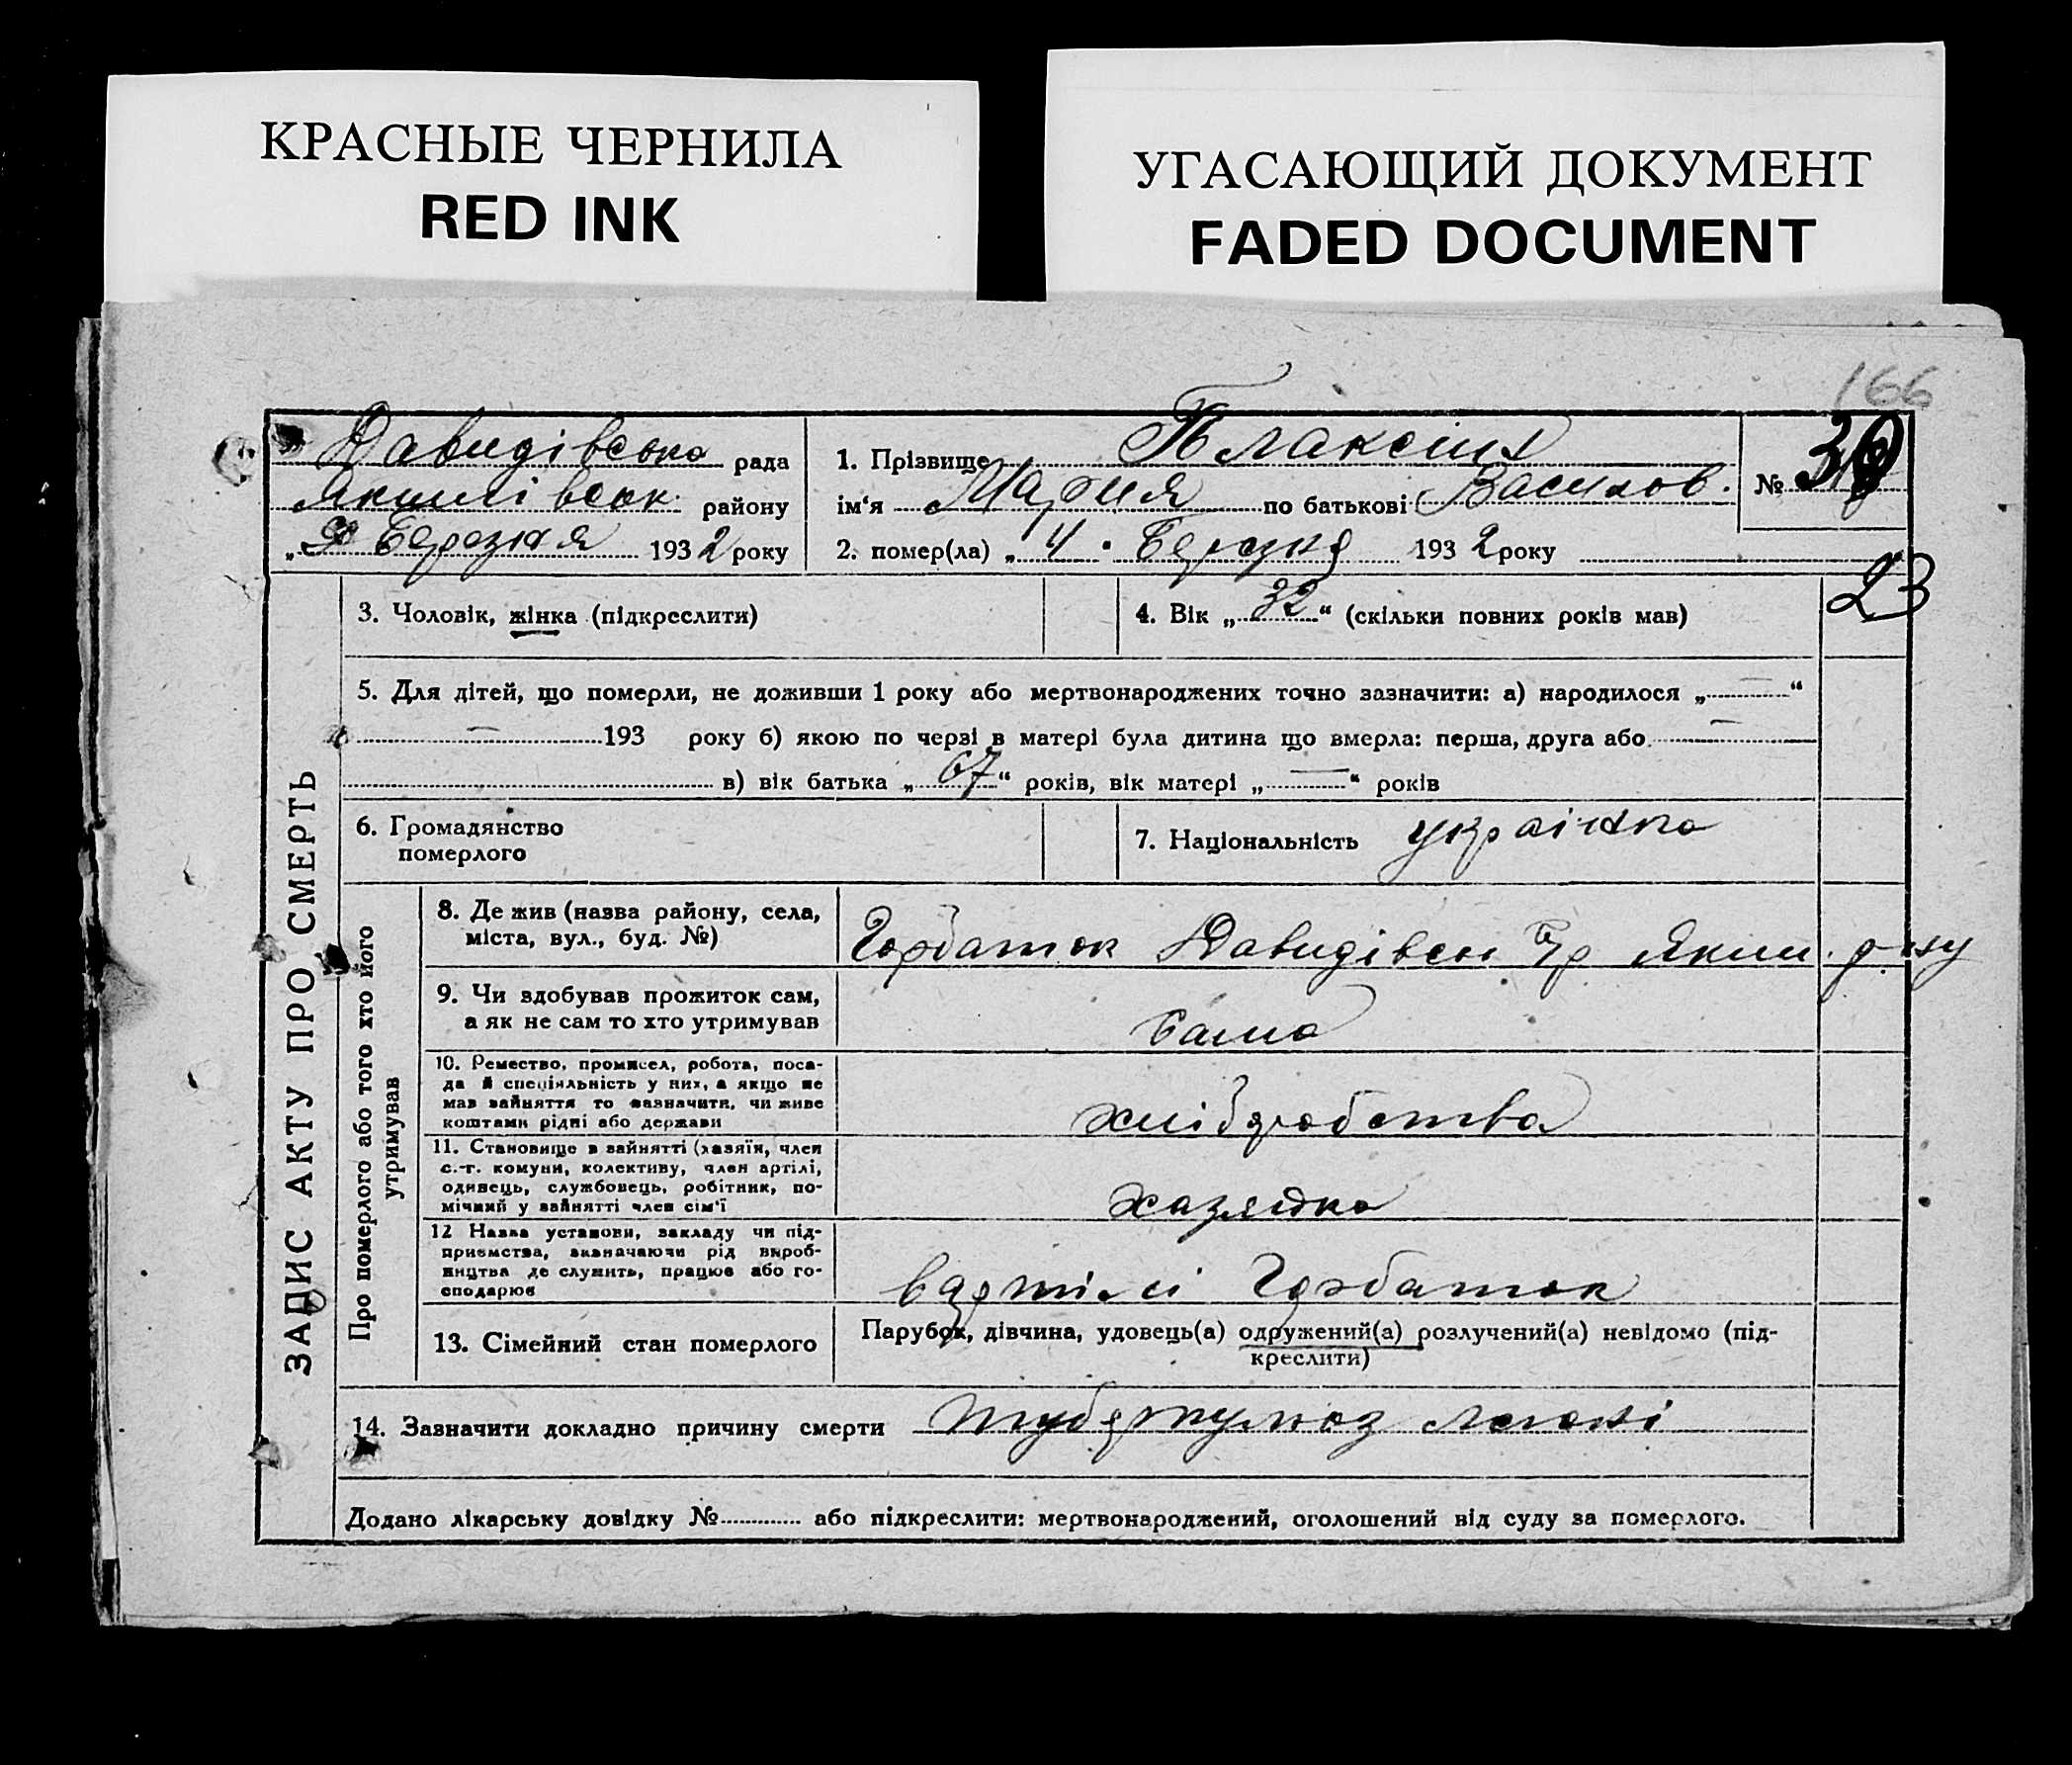 КРАСНЫЕ ЧЕРНИЛА
RED INK
УГАСАЮЩИЙ ДОКУМЕНТ
FADED DOCUMENT
166
Давидівсько рада
Якимівськ. району
Березня 1932 року
1. Прізвище Плаксіих
ім‘я Мария по батькові Василов.
2. помер(ла) „4. Березня 1932 року
№
23
ЗАПИС АКТУ ПРО СМЕРТЬ
3. Чоловік, жінка (підкреслити)
4. Вік „32“ (скільки повних років мав)
5. Для дітей, що померли, не доживши 1 року або мертвонароджених точно зазначити: а) народилося „—“
— 193 року б) якою по черзі в матері була дитина що вмерла: перша, друга або —
в) вік батька „67“ років, вік матері „—“ років
6. Громадянство
померлого
7. Національність українка
Про померлого або того хто його
утримував
8. Де жив (назва району, села,
міста, вул., буд. №)
Горбаток Давидівсь Яким. р-ну
9. Чи здобував прожиток сам,
а як не сам то хто утримував
Сама
10. Ремество, промисел, робота, поса-
да й спеціяльність у них, а якщо не
мав заняття то зазначити, чи живе
коштами рідні або держави
хліборобства
11. Становище в зайнятті (хазяїн, член
с.-г. комуни, колективу, член артілі,
одинець, службовець, робітник, по-
мічний у зайнятті член сім‘ї
хазяйка
12 Назва установи, закладу чи під-
приємства, зазначаючи рід вироб-
ництва де служить, працює або го-
сподарює
вартілі Горбаток
13. Сімейний стан померлого
Парубок, дівчина, удовець(а) одружений(а) розлучений(а) невідомо (під-
креслити)
14. Зазначити докладно причину смерти туберкульоз легені
Додано лікарську довідку № або підкреслити: мертвонароджений, оголошений від суду за померлого.